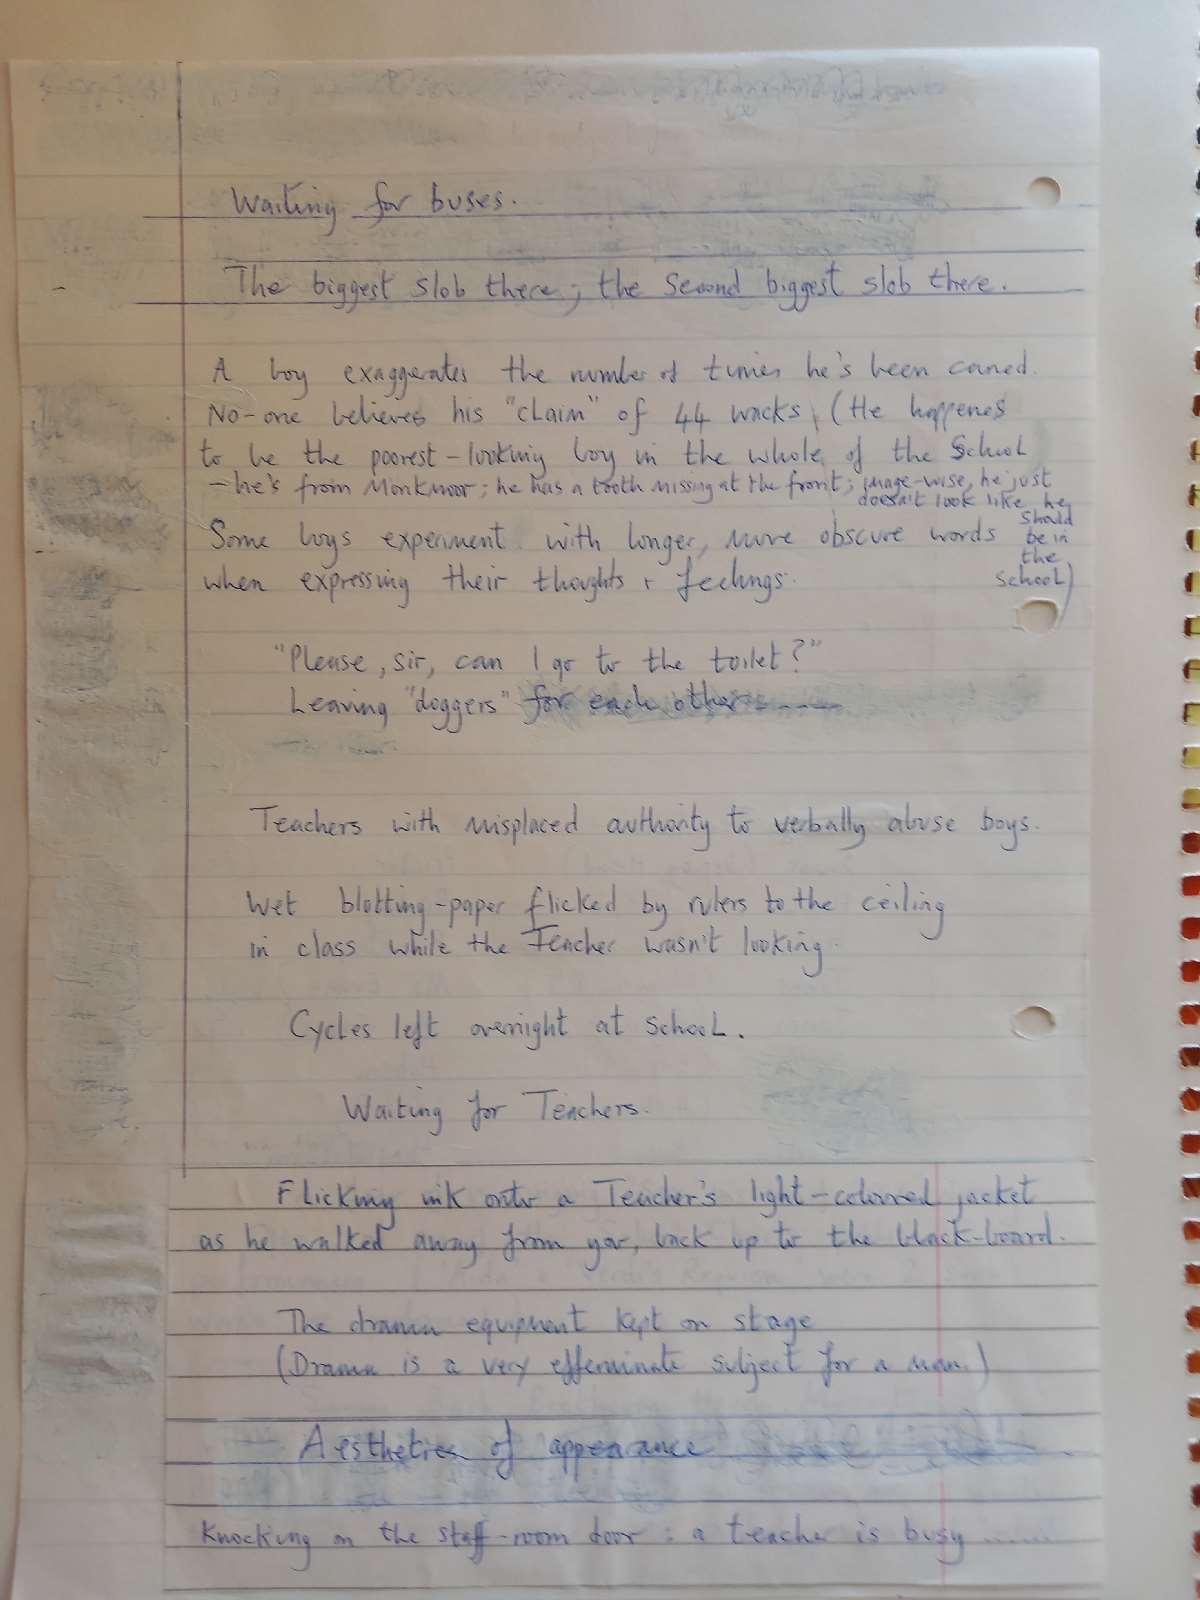 Waiting for buses.
The biggest slob there; the second biggest slob there.
A boy exaggerates the number of times he's been caned.
No-one believes his "claim" of 44 wacks, (He happenes
to be the poorest-looking boy in the whole of the School
- he's from Monkmoor; he has a tooth missing at the front; image-wise, he just
doesn't look like he
should
be in
the
school)
Some boys experiment with longer, more obscure words
when expressing their thoughts + feelings.
"Please, sir, can I go to the toilet?"
Leaving "doggers" for each other
Teachers with misplaced authority to verbally abuse boys.
Wet blotting-paper flicked by rulers to the ceiling
in class while the Teacher wasn't looking.
Cycles left overnight at school.
Waiting for Teachers.
Flicking ink onto a Teacher's light-coloured jacket
as he walked away from you, back up to the black-board.
The drama equipment kept on stage
(Drama is a very effeminate subject for a man.)
Aesthetics of appearance
Knocking on the staff-room door: a teacher is busy ......